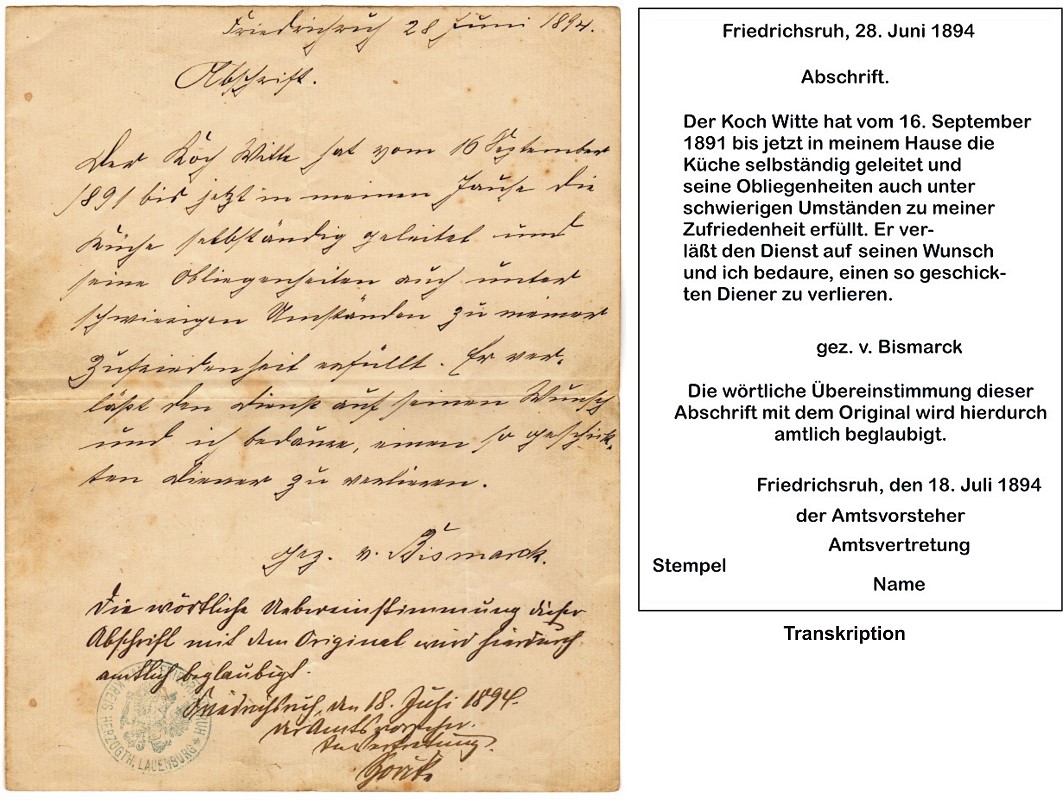 Friedrichsruh 28 Juni 1894.
Abschrift.
Der Koch Witte hat vom 16 September
1891 bis jetzt in meinem Hause die
Küche selbständig geleitet und
seine Obliegenheiten auch unter
schwierigen Umständen zu meiner
Zufriedenheit erfüllt. Er ver-
läßt den Dienst auf seinen Wunsch
und ich bedaure, einen so geschick-
ten Diener zu verlieren.
gez. v. Bismarck.
Die wörtliche Uebereinstimmung dieser
Abschrift mit dem Original wird hierdurch
amtlich beglaubigt.
Friedrichsruh, den 18. Juli 1894.
der Amtsvorsteher.
In Vertretung.
KREIS HERZOGTH. LAUENBURG
Friedrichsruh, 28. Juni 1894
Abschrift.
Der Koch Witte hat vom 16. September
1891 bis jetzt in meinem Hause die
Küche selbständig geleitet und
seine Obliegenheiten auch unter
schwierigen Umständen zu meiner
Zufriedenheit erfüllt. Er ver-
läßt den Dienst auf seinen Wunsch
und ich bedaure, einen so geschick-
ten Diener zu verlieren.
gez. v. Bismarck
Die wörtliche Übereinstimmung dieser
Abschrift mit dem Original wird hierdurch
amtlich beglaubigt.
Friedrichsruh, den 18. Juli 1894
der Amtsvorsteher
Amtsvertretung
Stempel
Name
Transkription